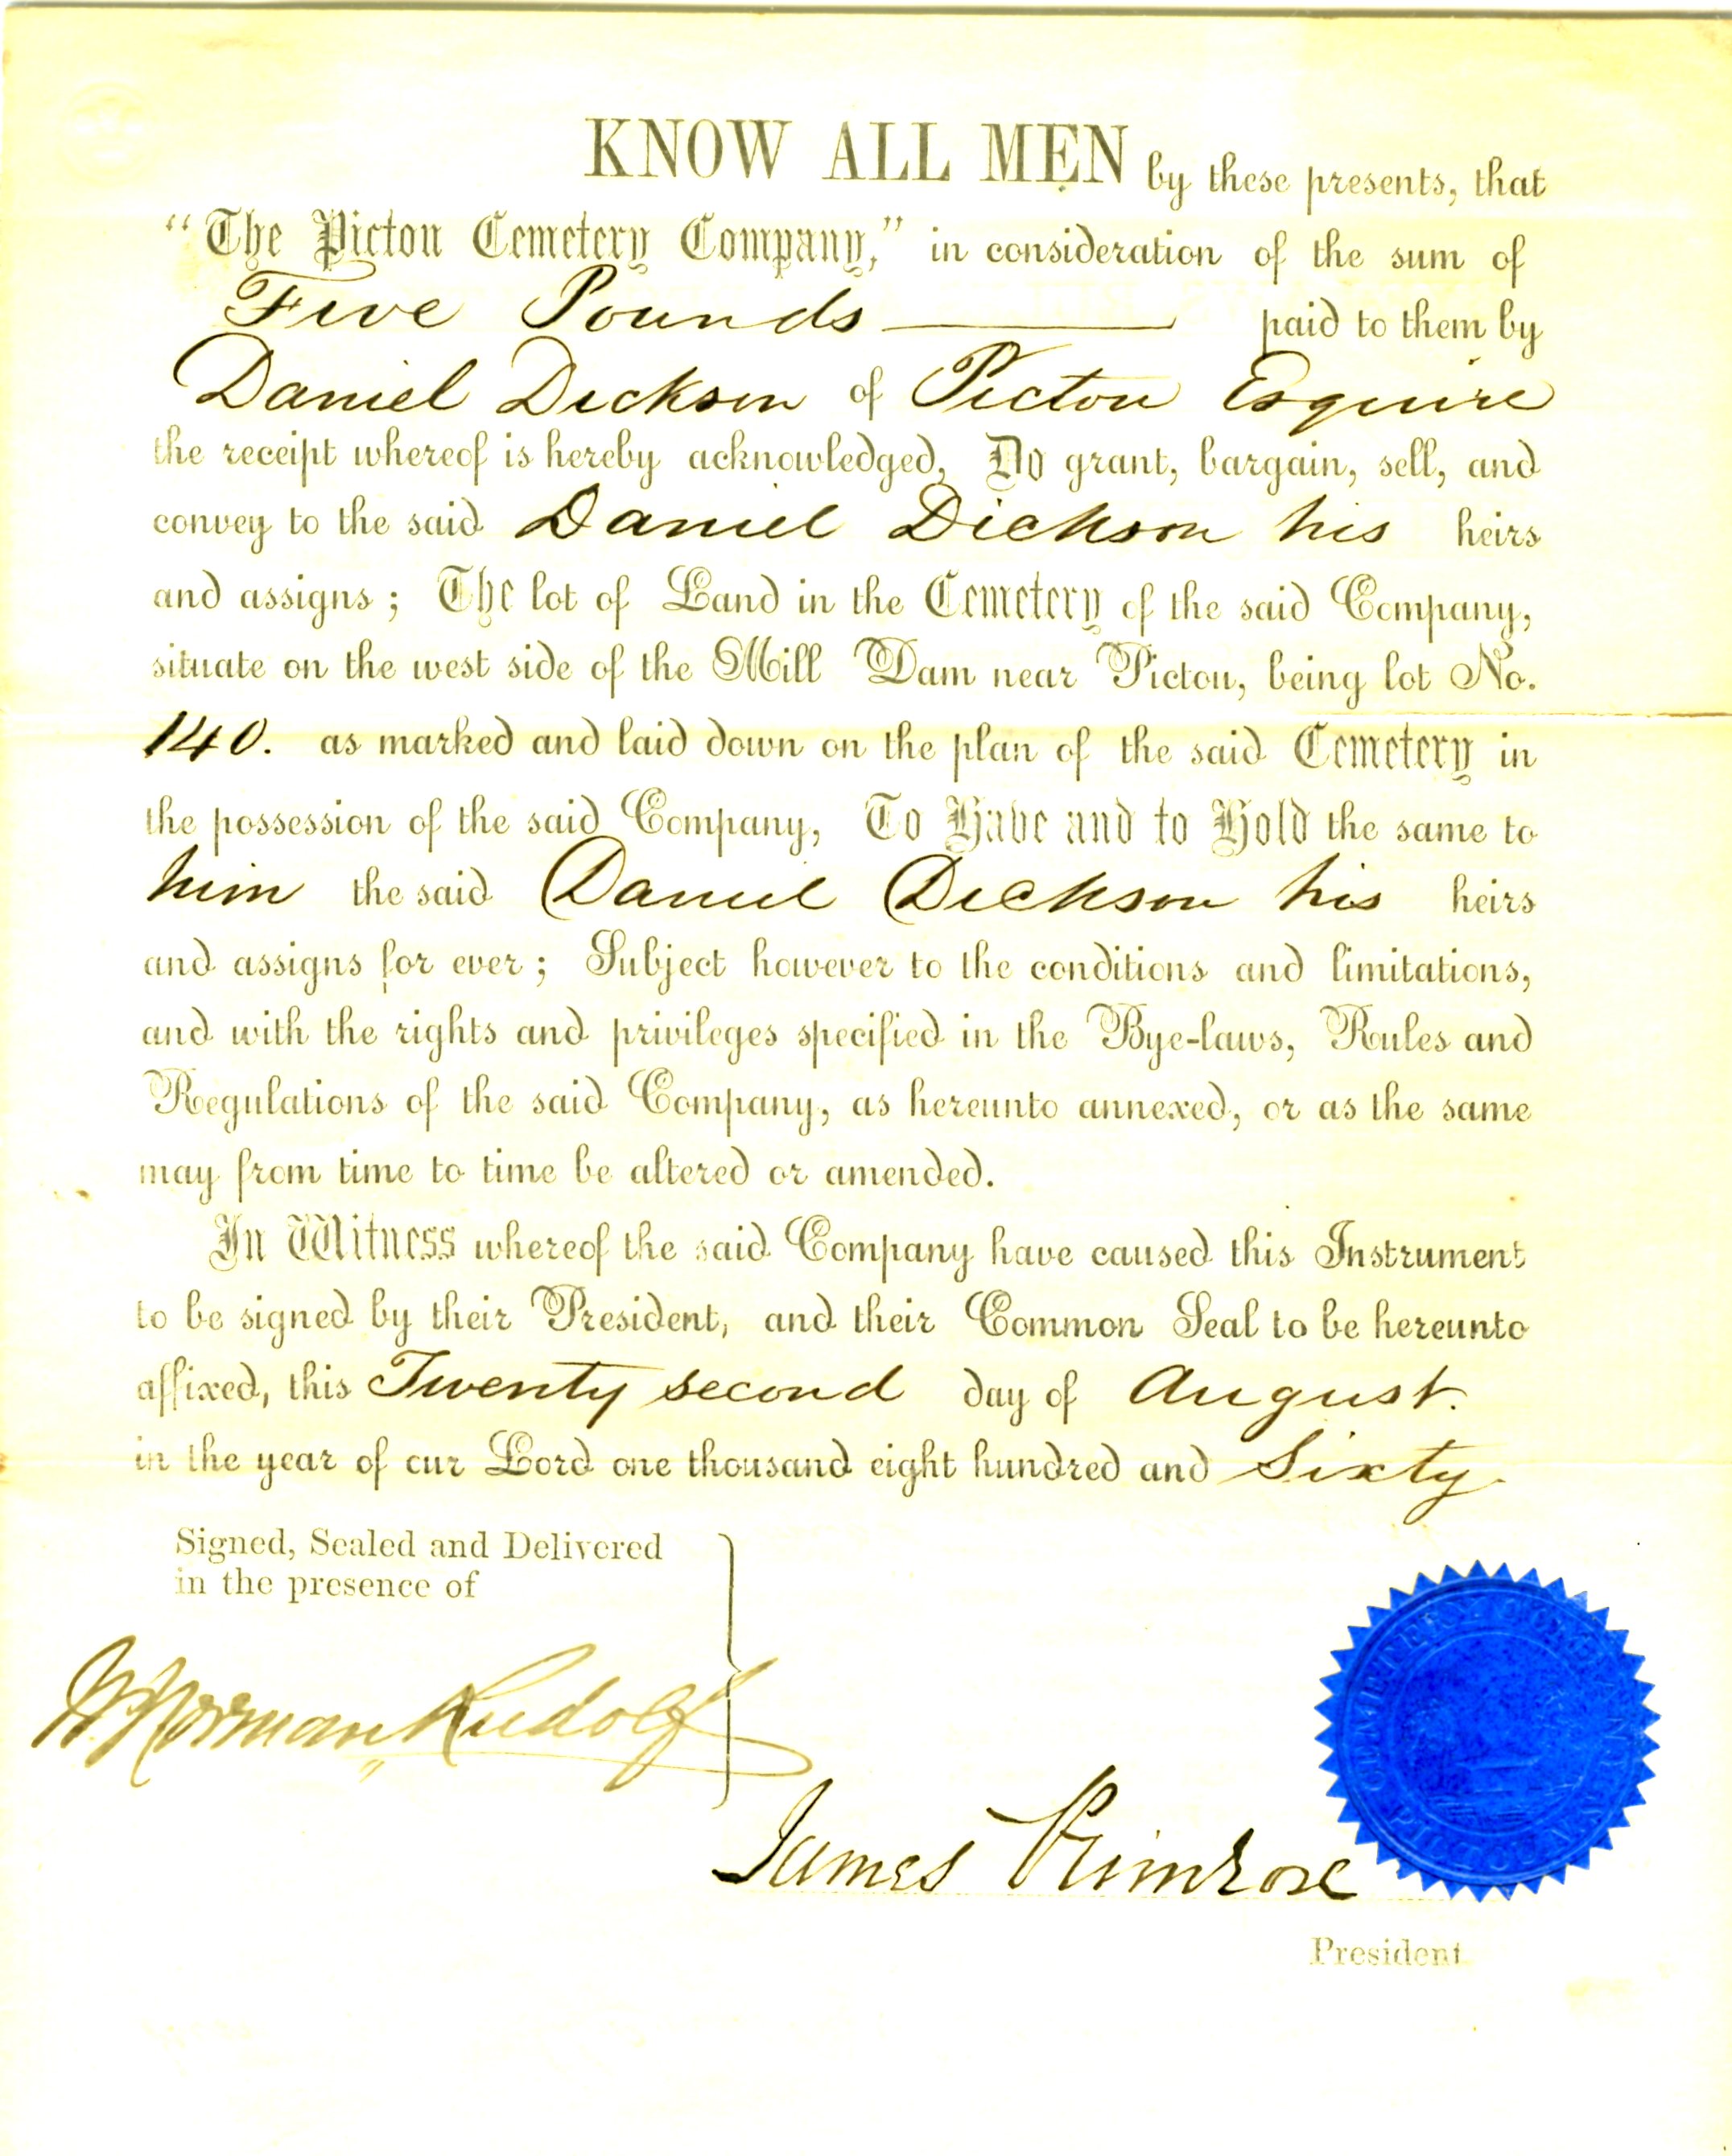 KNOW ALL MEN by these presents, that
"The Pictou Cemetery Company," in consideration of the sum of
Five Pounds paid to them by
Daniel Dickson of Pictou Esquire
the receipt whereof is hereby acknowledged, Do grant, bargain, sell, and
convey to the said Daniel Dickson his heirs
and assigns; The lot of Land in the Cemetery of the said Company,
situate on the west side of the Mill Dam near Pictou, being lot No.
140. as marked and laid down on the plan of the said Cemetery in
the possession of the said Company, To Have and to Hold the same to
him the said Daniel Dickson his heirs
and assigns for ever; Subject however to the conditions and limitations,
and with the rights and privileges specified in the Bye-laws, Rules and
Regulations of the said Company, as hereunto annexed, or as the same
may from time to time be altered or amended.
In Witness whereof the said Company have caused this Instrument
to be signed by their President, and their Common Seal to be hereunto
affixed, this Twenty second day of August.
in the year of our Lord one thousand eight hundred and Sixty
Signed, Sealed and Delivered
in the presence of
Norman Rudolf
James Primrose
President
CEMETERY COMPANY
PICTOU